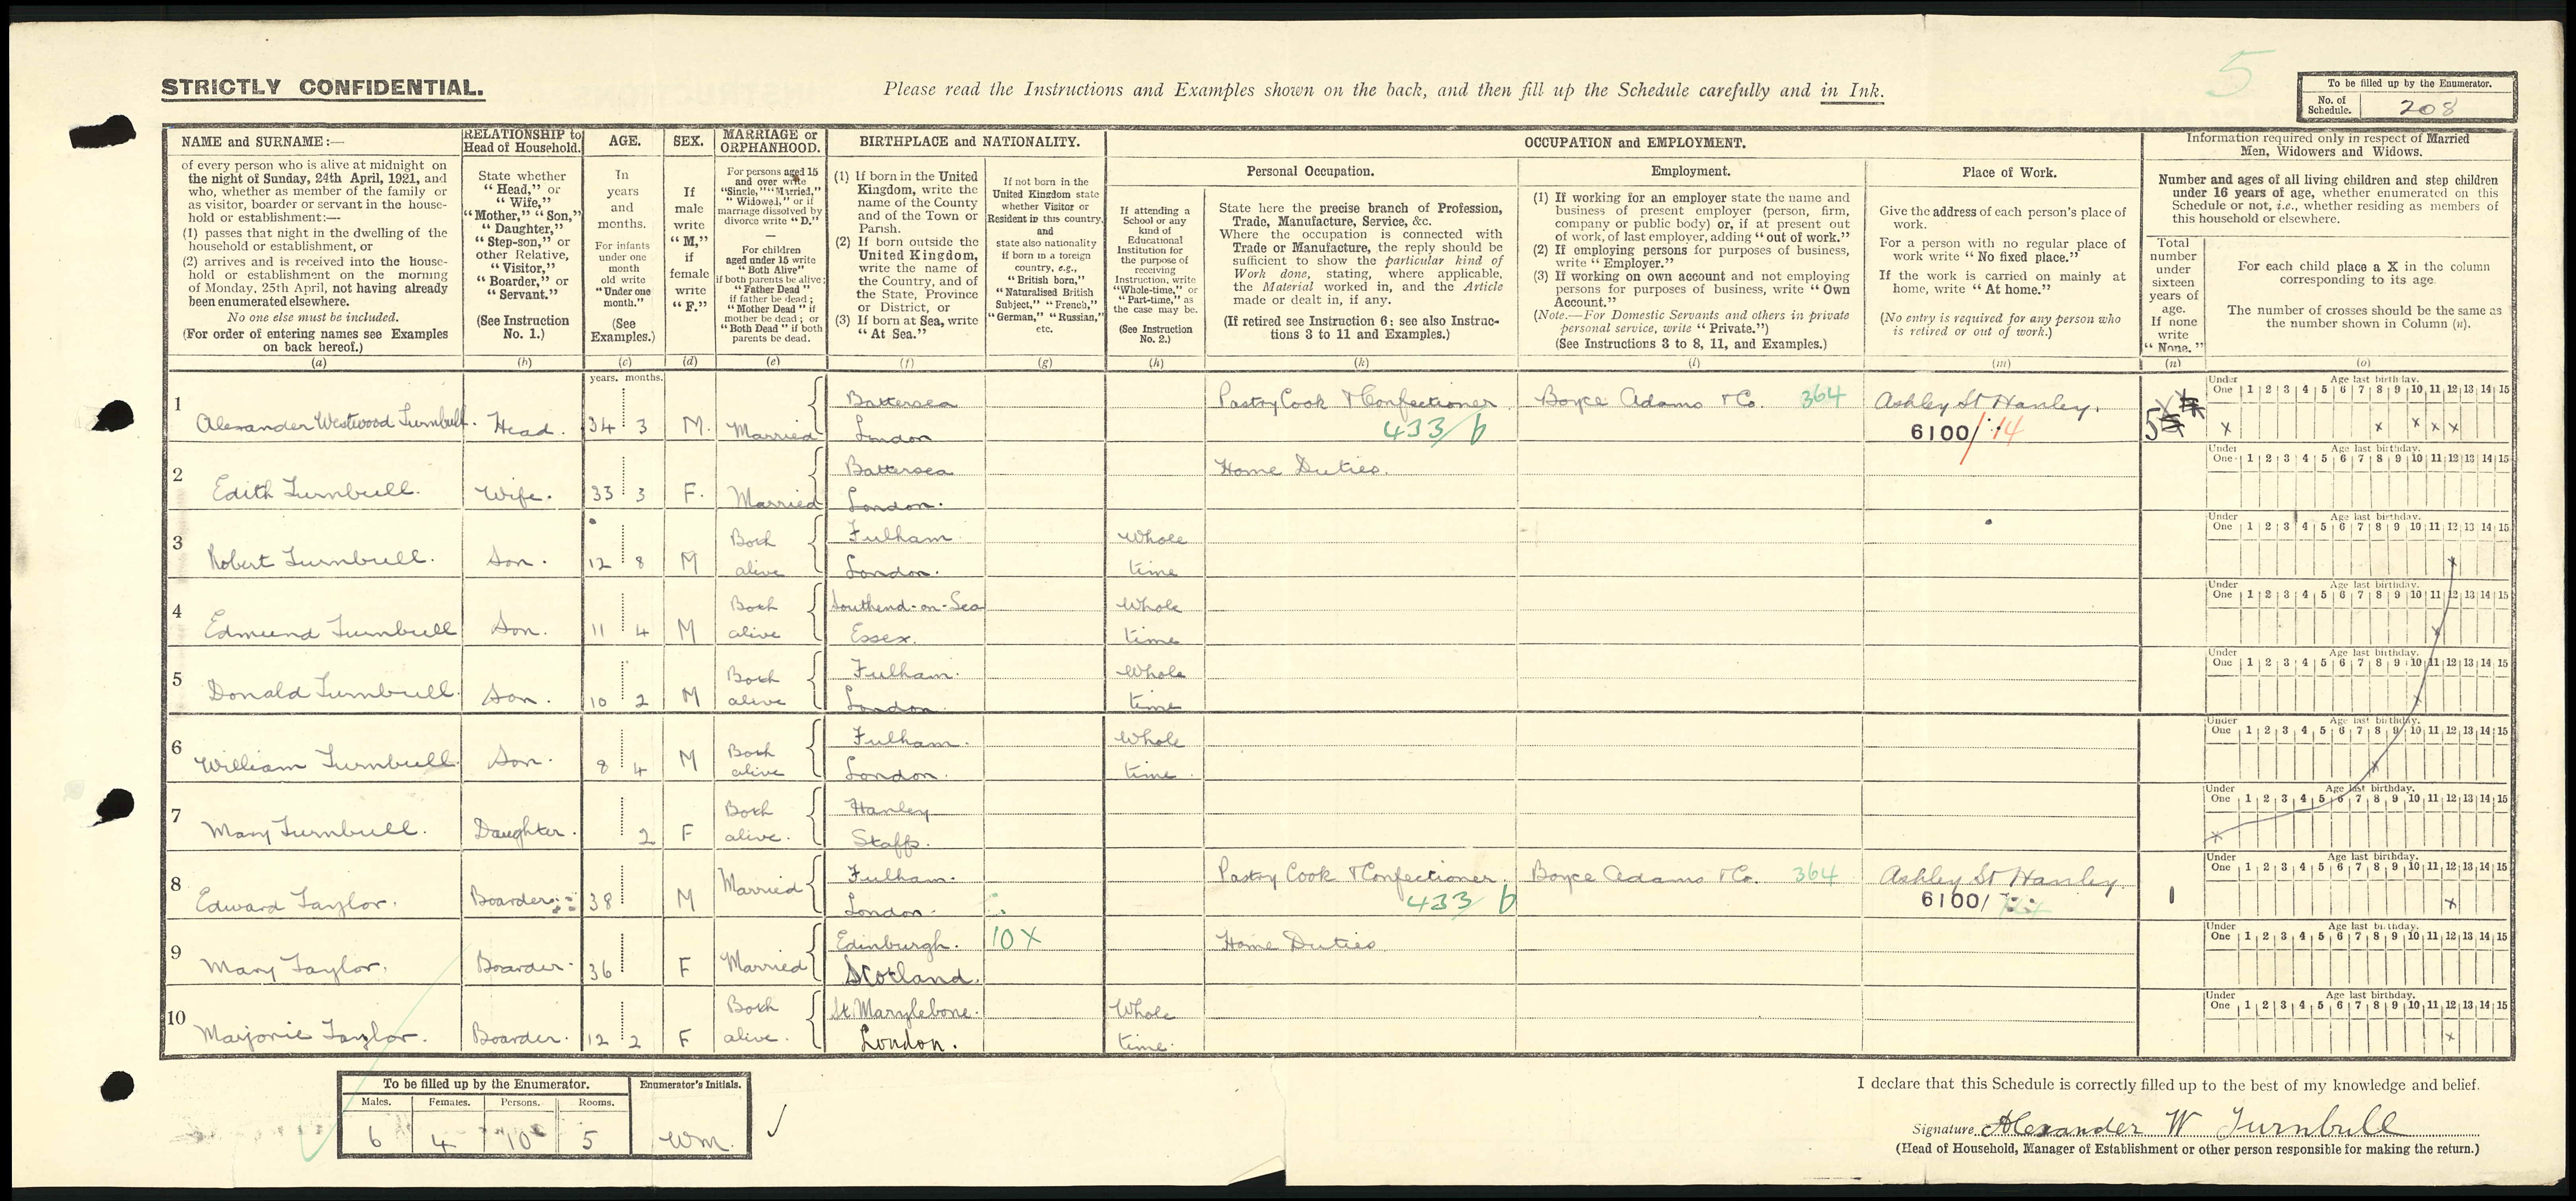 5
STRICTLY CONFIDENTIAL.
Please read the Instructions and Examples shown on the back, and then fill up the Schedule carefully and in Ink.
To be filled up by the Enumerator.
No. of Schedule. 208
NAME and SURNAME:—
of every person who is alive at midnight on
the night of Sunday, 24th April, 1921, and
who, whether as member of the family or
as visitor, boarder or servant in the house-
hold or establishment:—
(1) passes that night in the dwelling of the
household or establishment, or
(2) arrives and is received into the house-
hold or establishment on the morning
of Monday, 25th April, not having already
been enumerated elsewhere.
No one else must be included.
(For order of entering names see Examples
on back hereof.)
(a)
RELATIONSHIP to
Head of Household.
State whether
"Head," or
"Wife,"
"Mother," "Son,"
"Daughter,"
"Step-son," or
other Relative,
"Visitor,"
"Boarder," or
"Servant."
(See Instruction
No. 1.)
(b)
AGE.
In
years
and
months.
For infants
under one
month
old write
"Under one
month."
(See
Examples.)
(c)
SEX.
If
male
write
"M,"
if
female
write
"F."
(d)
MARRIAGE or
ORPHANHOOD.
For persons aged 15
and over write
"Single," "Married,"
"Widowed," or if
marriage dissolved by
divorce write "D."
—
For children
aged under 15 write
"Both Alive"
if both parents be alive;
"Father Dead"
if father be dead;
"Mother Dead" if
mother be dead; or
"Both Dead" if both
parents be dead.
(e)
BIRTHPLACE and NATIONALITY.
(1) If born in the United
Kingdom, write the
name of the County
and of the Town or
Parish.
(2) If born outside the
United Kingdom,
write the name of
the Country, and of
the State, Province
or District, or
(3) If born at Sea, write
"At Sea."
(f)
If not born in the
United Kingdom state
whether Visitor or
Resident in this country,
and
state also nationality
if born in a foreign
country, e.g.,
"British born,"
"Naturalised British
Subject," "French,"
"German," "Russian,"
etc.
(g)
OCCUPATION and EMPLOYMENT.
If attending a
School or any
kind of
Educational
Institution for
the purpose of
receiving
Instruction, write
"Whole-time," or
"Part-time," as
the case may be.
(See Instruction
No. 2.)
(h)
Personal Occupation.
State here the precise branch of Profession,
Trade, Manufacture, Service, &c.
Where the occupation is connected with
Trade or Manufacture, the reply should be
sufficient to show the particular kind of
Work done, stating, where applicable,
the Material worked in, and the Article
made or dealt in, if any.
(If retired see Instruction 6: see also Instruc-
tions 3 to 11 and Examples.)
(k)
Employment.
(1) If working for an employer state the name and
business of present employer (person, firm,
company or public body) or, if at present out
of work, of last employer, adding "out of work."
(2) If employing persons for purposes of business,
write "Employer."
(3) If working on own account and not employing
persons for purposes of business, write "Own
Account."
(Note.—For Domestic Servants and others in private
personal service, write "Private.")
(See Instructions 3 to 8, 11, and Examples.)
(l)
Place of Work.
Give the address of each person's place of
work.
For a person with no regular place of
work write "No fixed place."
If the work is carried on mainly at
home, write "At home."
(No entry is required for any person who
is retired or out of work.)
(m)
Information required only in respect of Married
Men, Widowers and Widows.
Number and ages of all living children and step children
under 16 years of age, whether enumerated on this
Schedule or not, i.e., whether residing as members of
this household or elsewhere.
Total
number
under
sixteen
years of
age.
If none
write
"None."
(n)
For each child place a X in the column
corresponding to its age
The number of crosses should be the same as
the number shown in Column (n).
(o)
years. months.
Under One 1 2 3 4 5 6 7 8 9 10 11 12 13 14 15
Age last birthday.
1 Alexander Westwood Turnbull. Head. 34 3 M. Married Battersea London Pastry Cook & Confectioner 433/6 Boyce Adams & Co. 364 Ashley St Hanley. 6100/ 14 5 x x x x x
Under One 1 2 3 4 5 6 7 8 9 10 11 12 13 14 15
Age last birthday.
2 Edith Turnbull. Wife. 33 3 F. Married Battersea London. Home Duties.
Under One 1 2 3 4 5 6 7 8 9 10 11 12 13 14 15
Age last birthday.
3 Robert Turnbull. Son. 12 8 M Both alive Fulham London. Whole time x
Under One 1 2 3 4 5 6 7 8 9 10 11 12 13 14 15
Age last birthday.
4 Edmund Turnbull Son. 11 4 M Both alive Southend-on-Sea Essex. Whole time x
Under One 1 2 3 4 5 6 7 8 9 10 11 12 13 14 15
Age last birthday.
5 Donald Turnbull. Son. 10 2 M Both alive Fulham. London. Whole time x
Under One 1 2 3 4 5 6 7 8 9 10 11 12 13 14 15
Age last birthday.
6 William Turnbull Son. 8 4 M Both alive Fulham. London. Whole time. x
Under One 1 2 3 4 5 6 7 8 9 10 11 12 13 14 15
Age last birthday.
7 Mary Turnbull. Daughter. 2 F Both alive. Hanley Staffs. x
Under One 1 2 3 4 5 6 7 8 9 10 11 12 13 14 15
Age last birthday.
8 Edward Taylor. Boarder 38 M Married Fulham. London. Pastry Cook & Confectioner. 433/6 Boyce Adams & Co. 364 Ashley St Hanley. 6100/ 1 x
Under One 1 2 3 4 5 6 7 8 9 10 11 12 13 14 15
Age last birthday.
9 Mary Taylor. Boarder. 36 F Married Edinburgh. Scotland. 10X Home Duties
Under One 1 2 3 4 5 6 7 8 9 10 11 12 13 14 15
Age last birthday.
10 Marjorie Taylor. Boarder. 12 2 F Both alive. St. Marylebone. London. Whole time. x
To be filled up by the Enumerator.
Males. Females. Persons. Rooms.
6 4 10 5
Enumerator's Initials.
WM.
I declare that this Schedule is correctly filled up to the best of my knowledge and belief.
Signature Alexander W Turnbull
(Head of Household, Manager of Establishment or other person responsible for making the return.)